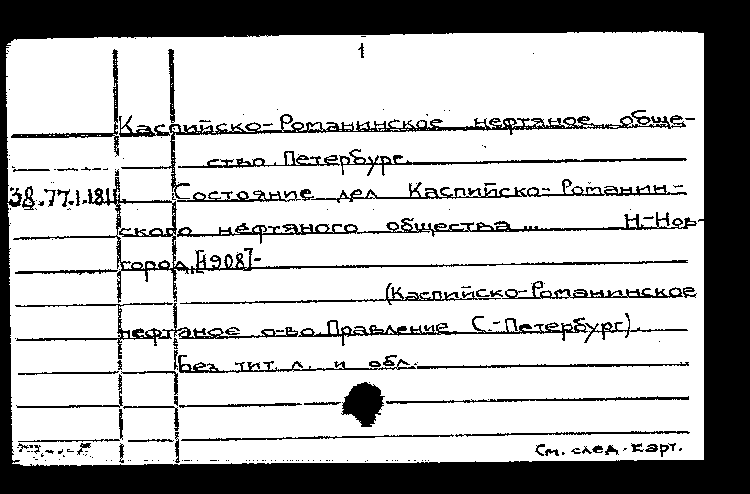 1
Каспийско-Романинское нефтяное обще-
ство. Петербург.
38.77.1.181. Состояние дел Каспийско-Романин-
ского нефтяного общества ... Н.-Нов-
город, [1908]-
(Каспийско-Романинское
нефтяное о-во. Правление. С.-Петербург).
Без тит. л. и обл.
См. след. карт.